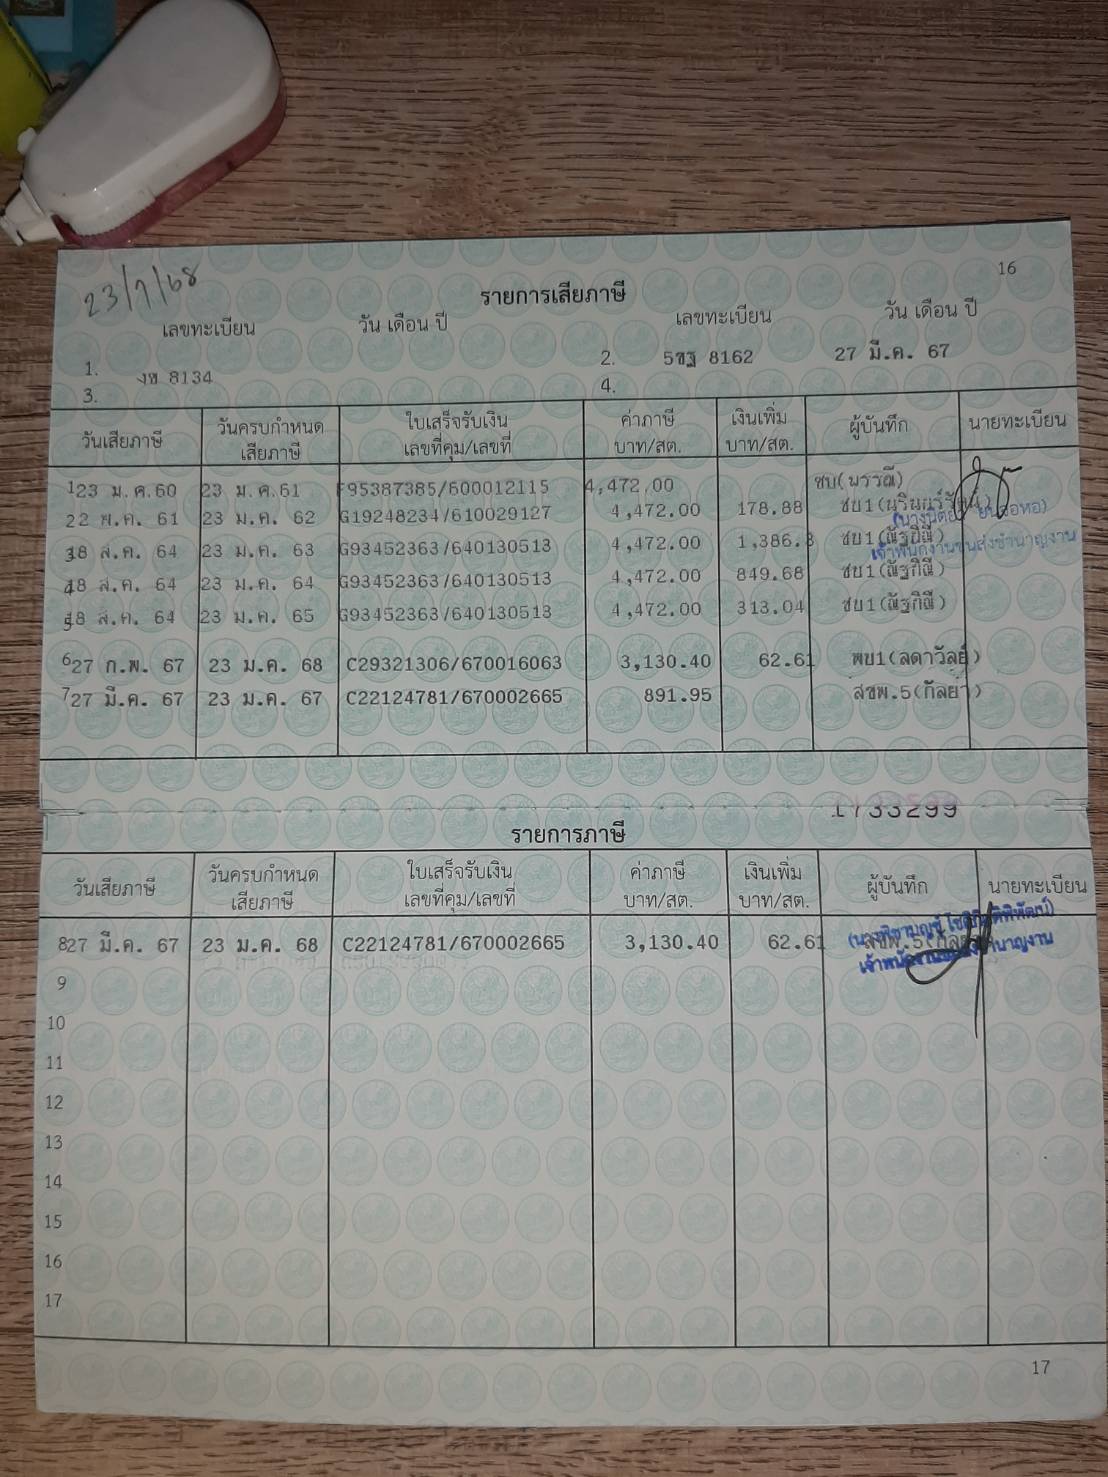 23/1/68
16
รายการเสียภาษี
เลขทะเบียน วัน เดือน ปี เลขทะเบียน วัน เดือน ปี
1. งข 8134 2. 5ขฐ 8162 27 มี.ค. 67
3. 4.
วันเสียภาษี วันครบกำหนดเสียภาษี ใบเสร็จรับเงิน เลขที่คุม/เลขที่ ค่าภาษี บาท/สต. เงินเพิ่ม บาท/สต. ผู้บันทึก นายทะเบียน
1 23 ม.ค.60 23 ม.ค.61 F95387385/600012115 4,472.00 ชบ(บรรณี)
22 พ.ค. 61 23 ม.ค. 62 G19248234/610029127 4,472.00 178.88
3 18 ส.ค. 64 23 ม.ค. 63 G93452363/640130513 4,472.00 1,386.3 ชบ1(ณัฐกิณี)
เจ้าพนักงานขนส่งชำนาญงาน
4 18 ส.ค. 64 23 ม.ค. 64 G93452363/640130513 4,472.00 849.68 ชบ1(ณัฐกิณี)
5 18 ส.ค. 64 23 ม.ค. 65 G93452363/640130513 4,472.00 313.04 ชบ1(ณัฐกิณี)
6 27 ก.พ. 67 23 ม.ค. 68 C29321306/670016063 3,130.40 62.61 พบ1(ลดาวัลย์)
7 27 มี.ค. 67 23 ม.ค. 67 C22124781/670002665 891.95 สขพ.5(กัลยา)
1733299
รายการภาษี
วันเสียภาษี วันครบกำหนด เสียภาษี ใบเสร็จรับเงิน เลขที่คุม/เลขที่ ค่าภาษี บาท/สต. เงินเพิ่ม บาท/สต. ผู้บันทึก นายทะเบียน
8 27 มี.ค. 67 23 ม.ค. 68 C22124781/670002665 3,130.40 62.61 สขพ.5(กัลยา)
9
10
11
12
13
14
15
16
17
17